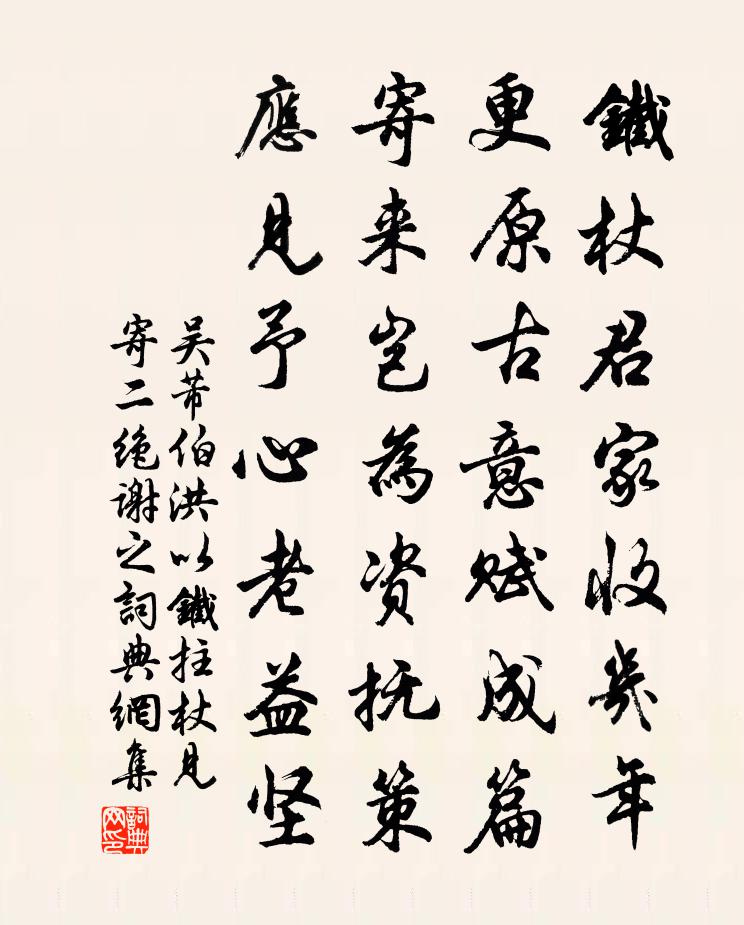 鐵杖君家收幾年
更原古意賦成篇
寄来豈為資抚策
應見予心老益坚
吴芾伯洪以鐵拄杖見
寄二绝謝之詞典網集
詞典